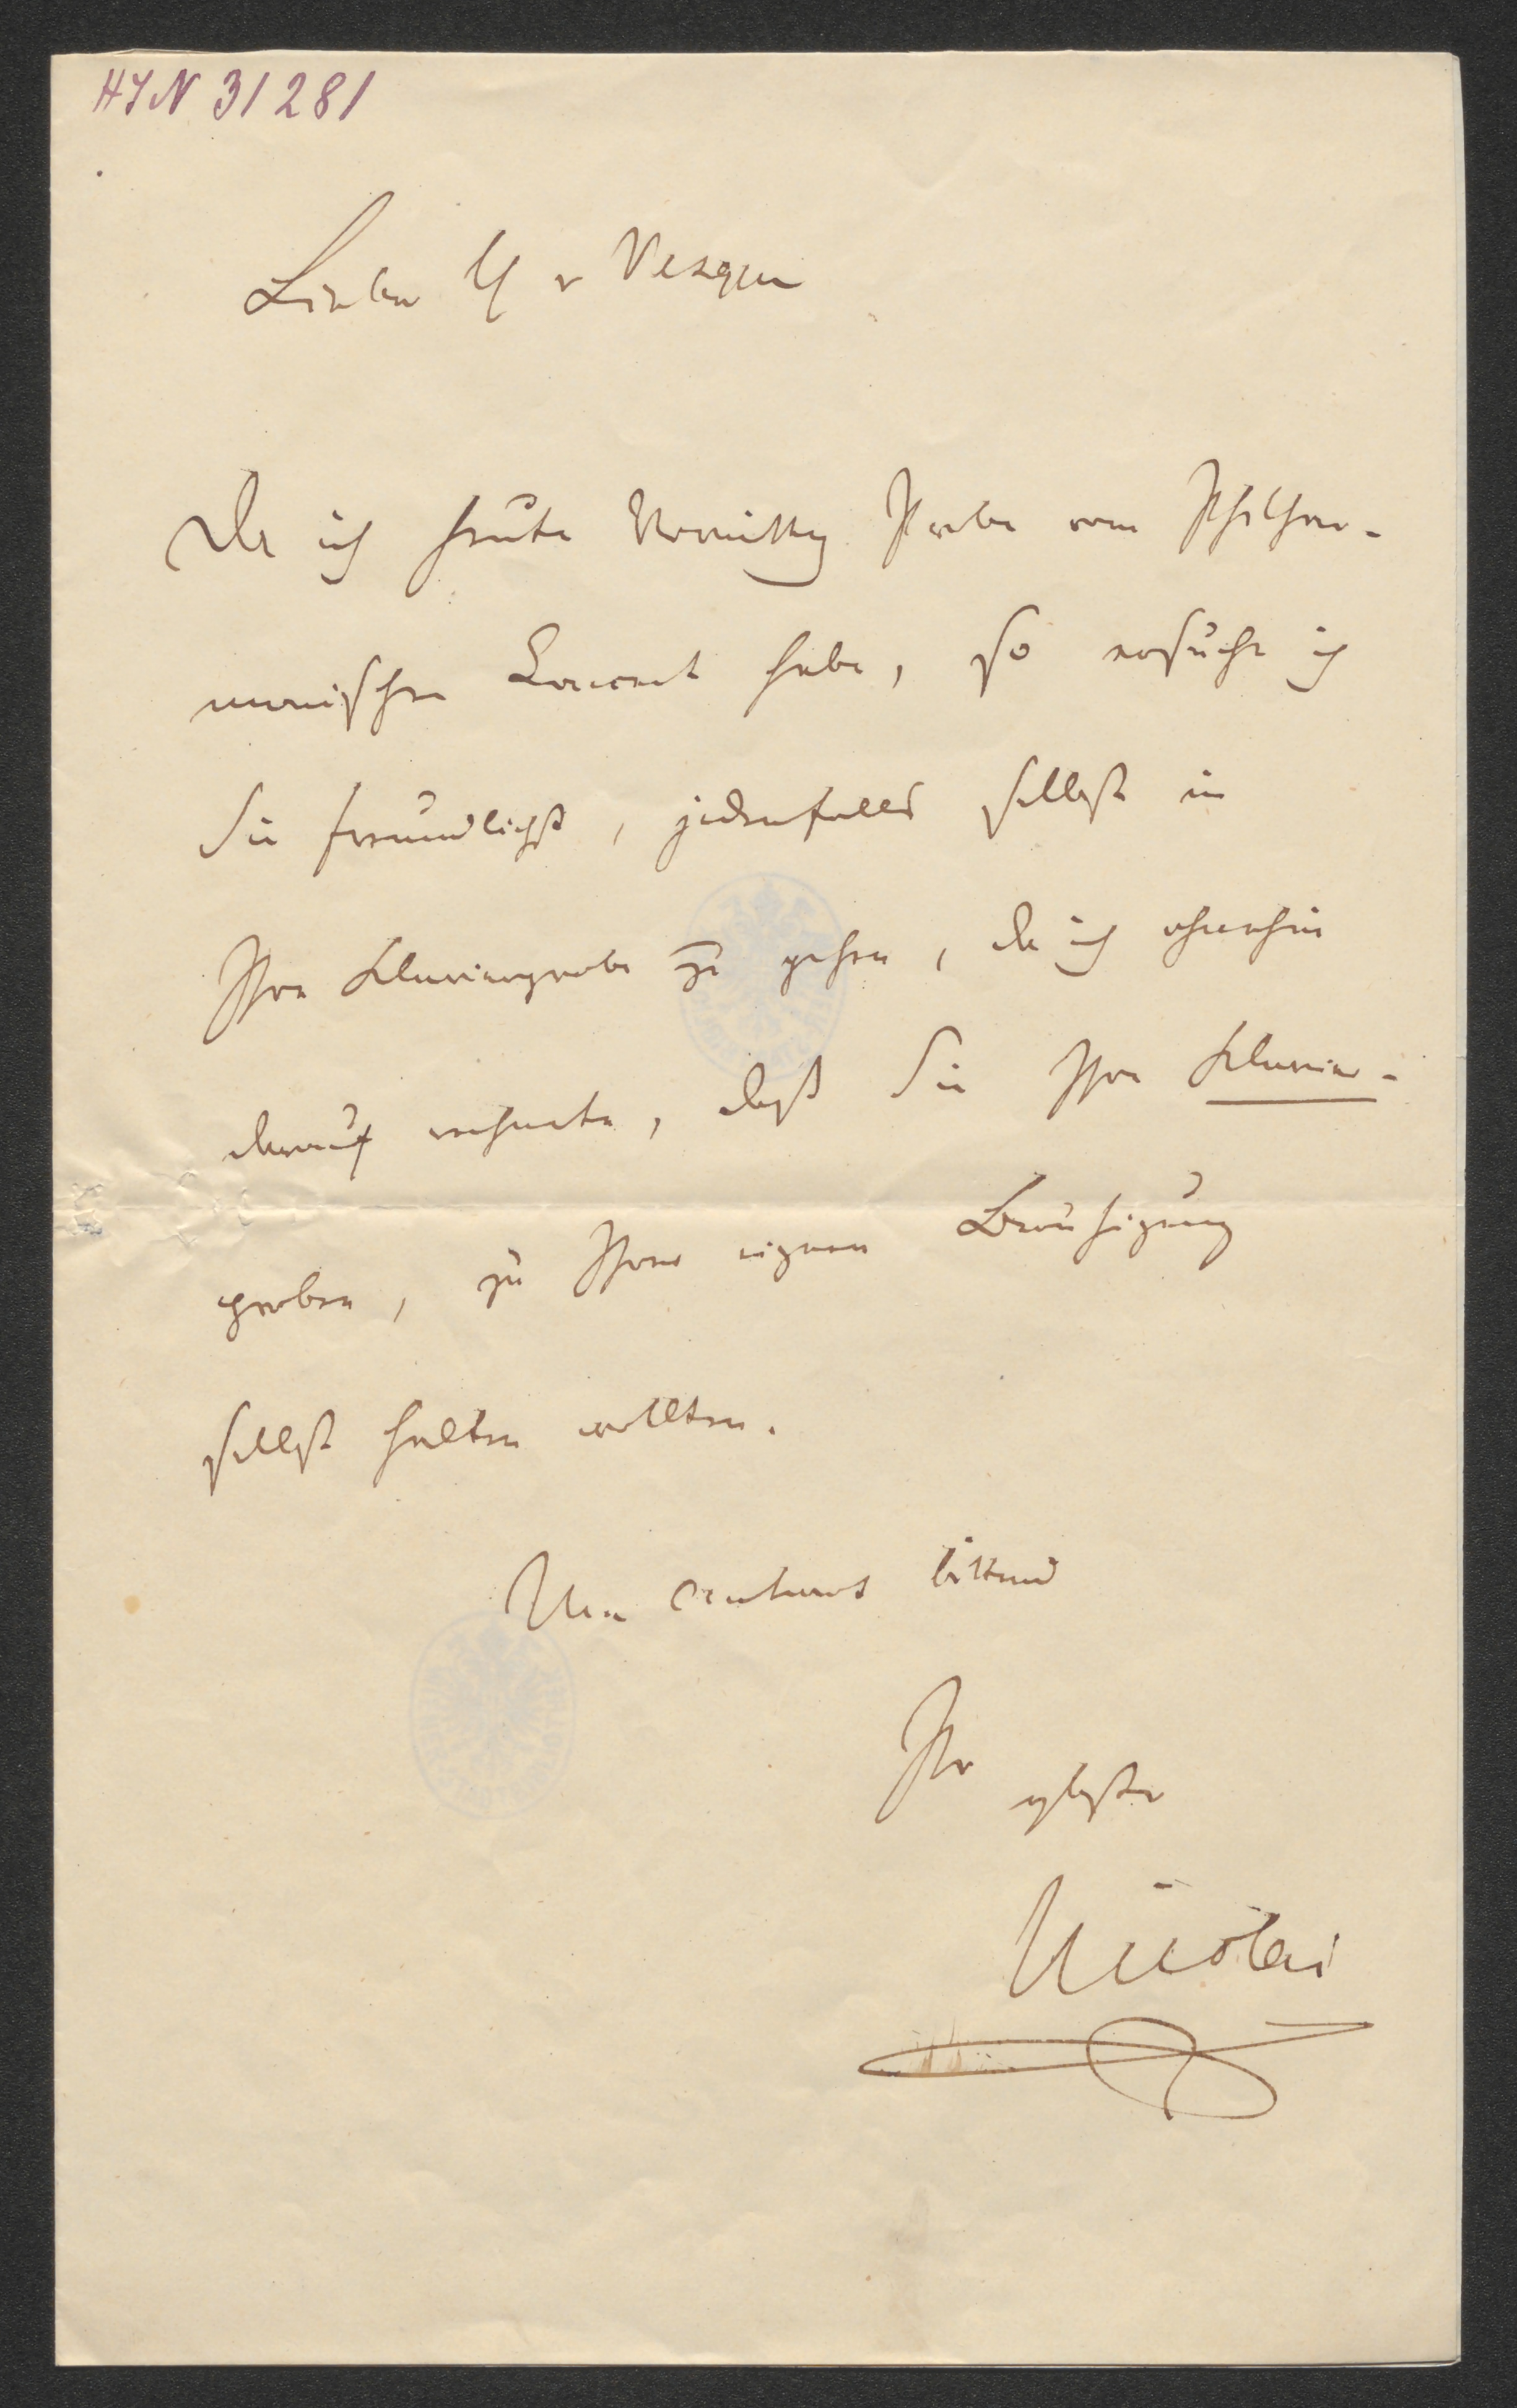 HJN 31281
Lieber H v Vesque
Da ich heute Vormittag Probe vom Philhar-
monischen Concert habe, so ersuche ich
Sie freundlichst, jedenfalls selbst in
Ihre Klavierprobe zu gehen, da ich ohnehin
darauf rechnete, daß Sie Ihre Klavier-
proben, zu Ihrer eignen Beruhigung
selbst halten wollten.
Um Antwort bittend
Ihr
Nicolai